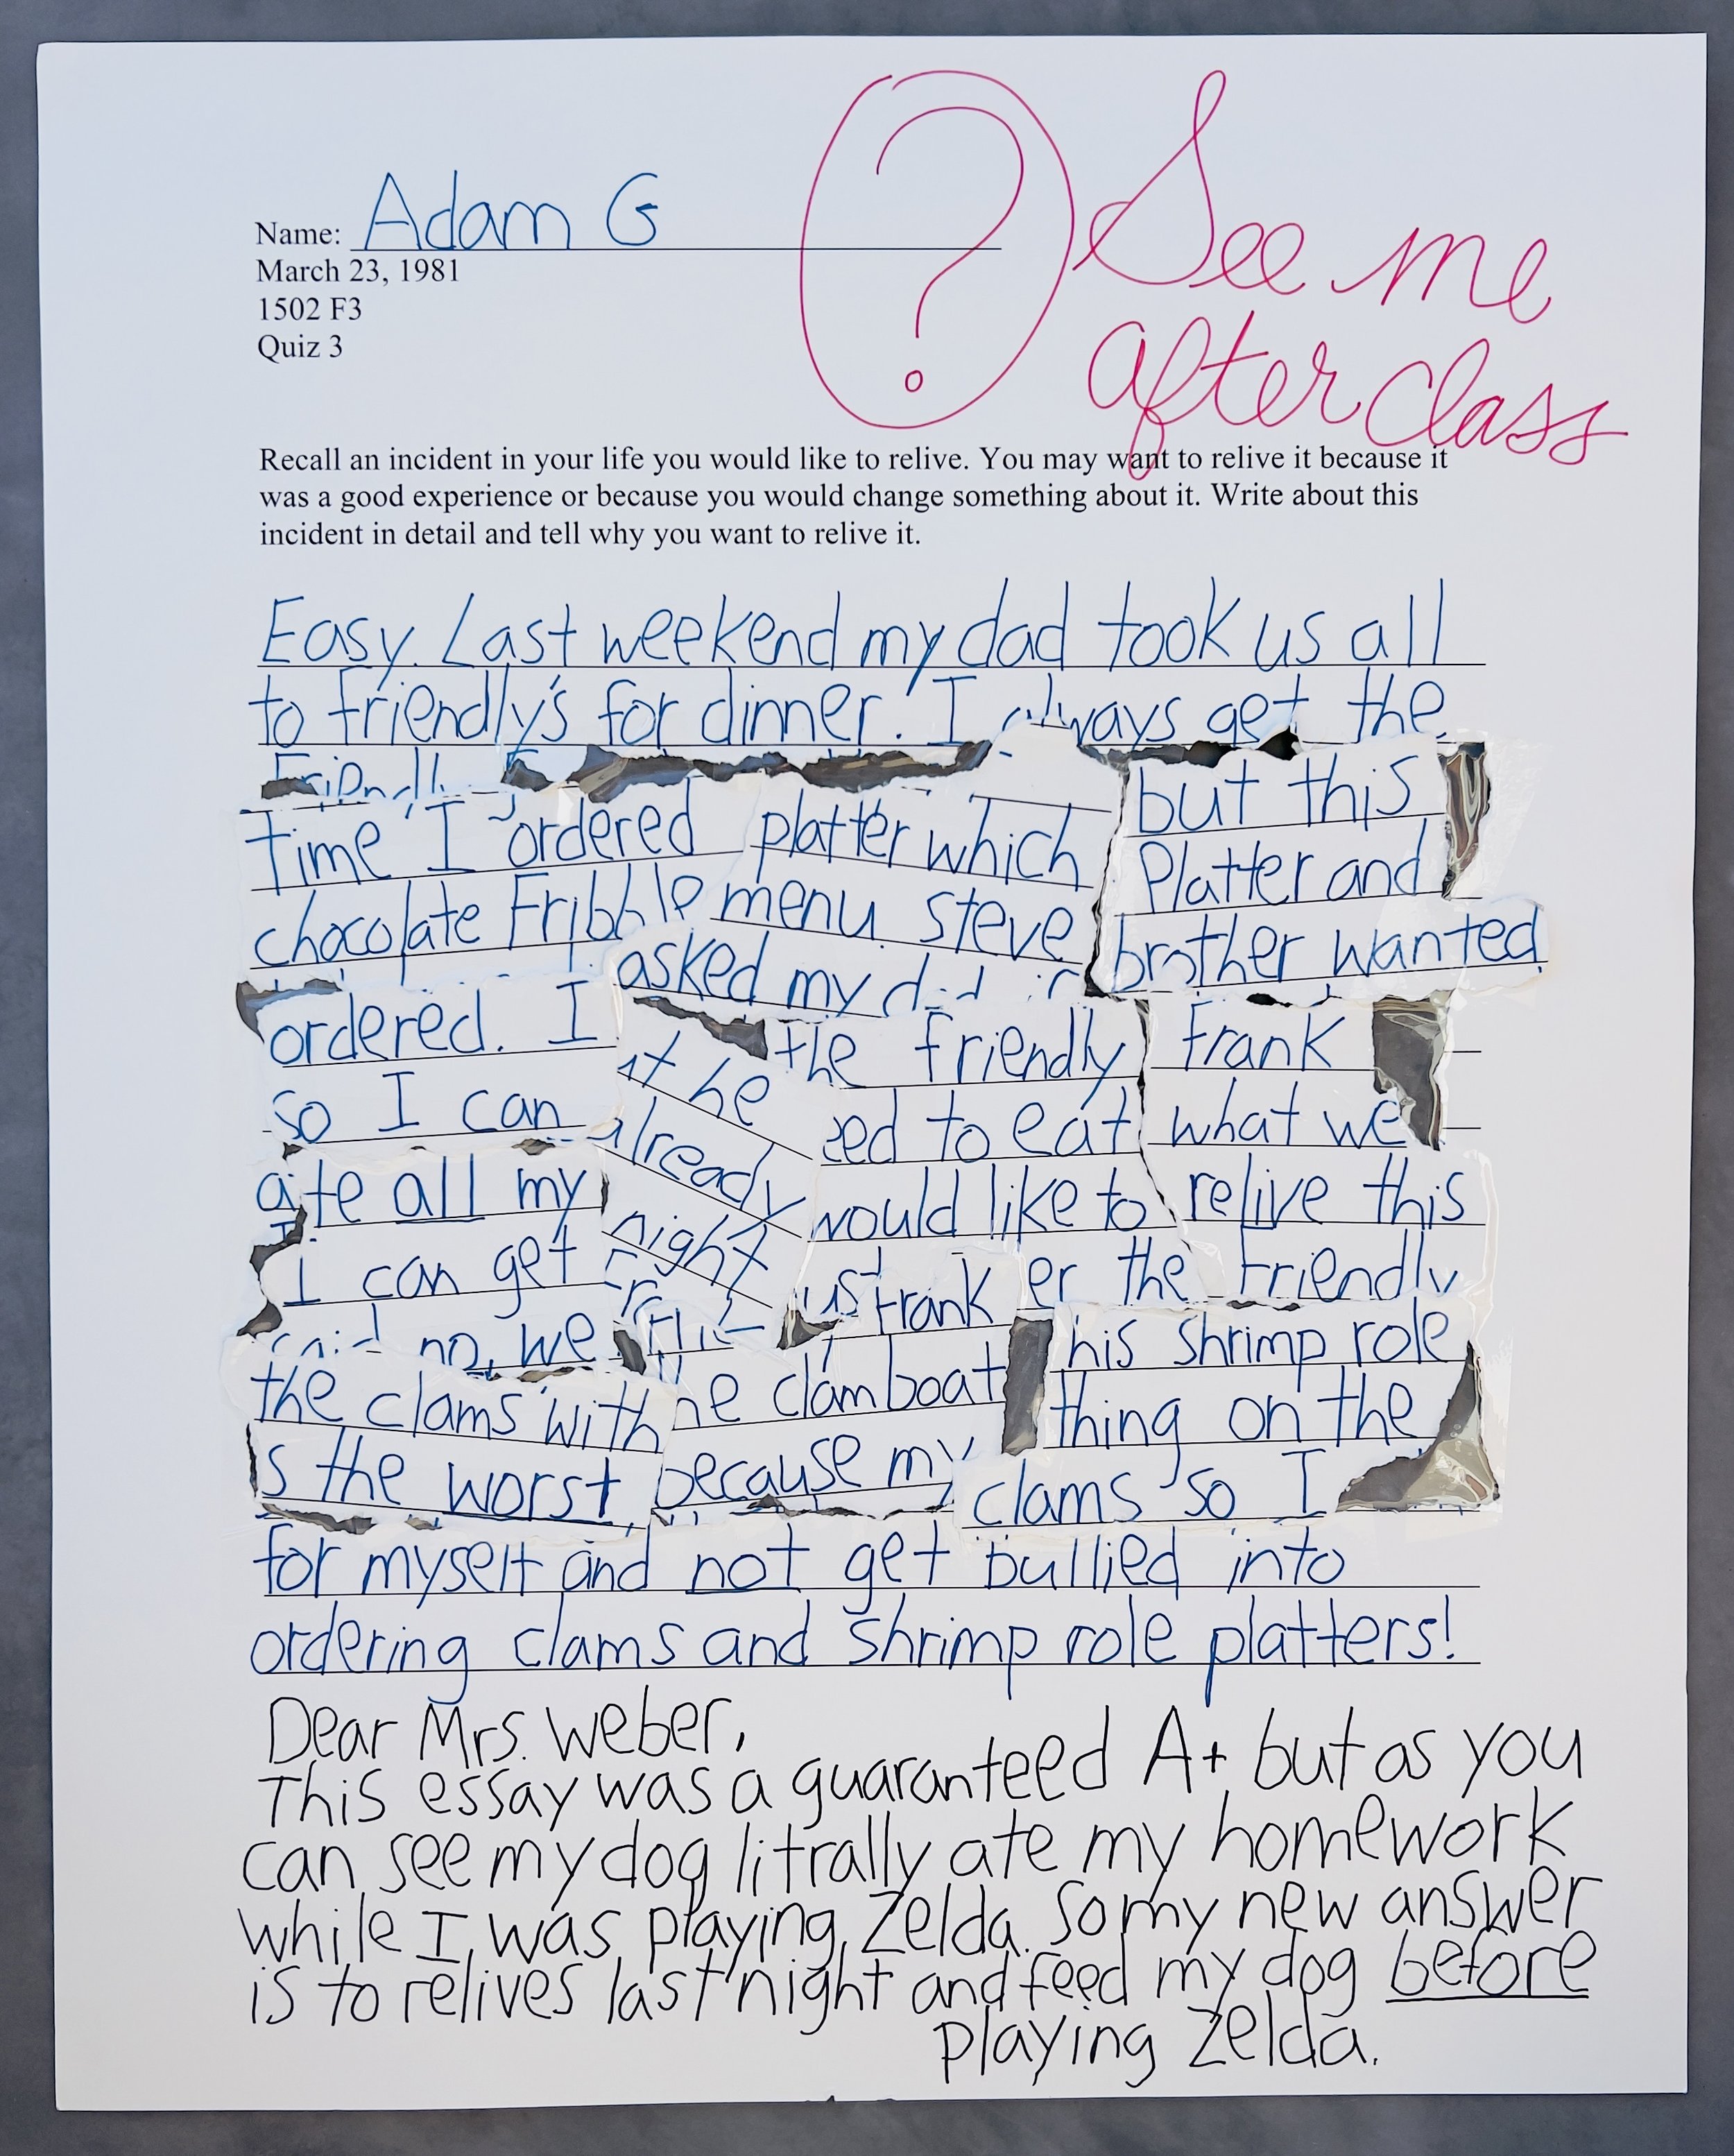 See me
after class
Name: Adam G
March 23, 1981
1502 F3
Quiz 3
?
Recall an incident in your life you would like to relive. You may want to relive it because it
was a good experience or because you would change something about it. Write about this
incident in detail and tell why you want to relive it.
Easy. Last weekend my dad took us all
to friendly's for dinner. I always get the
but this
time I ordered platter which Platter and
chocolate Fribble menu. Steve brother wanted
asked my
ordered. I the friendly Frank
it he
so I can eed to eat what we
already
ate all my would like to relive this
night
I can get Frank er the Friendly
no, we his shrimp role
the clams with he clamboat thing on the
s the worst, because my clams so I
for myself and not get bullied into
ordering clams and shrimp role platters!
Dear Mrs. Weber,
This essay was a guaranteed A+ but as you
can see my dog litrally ate my homework
while I was playing Zelda. So my new answer
is to relives last night and feed my dog before
playing Zelda.